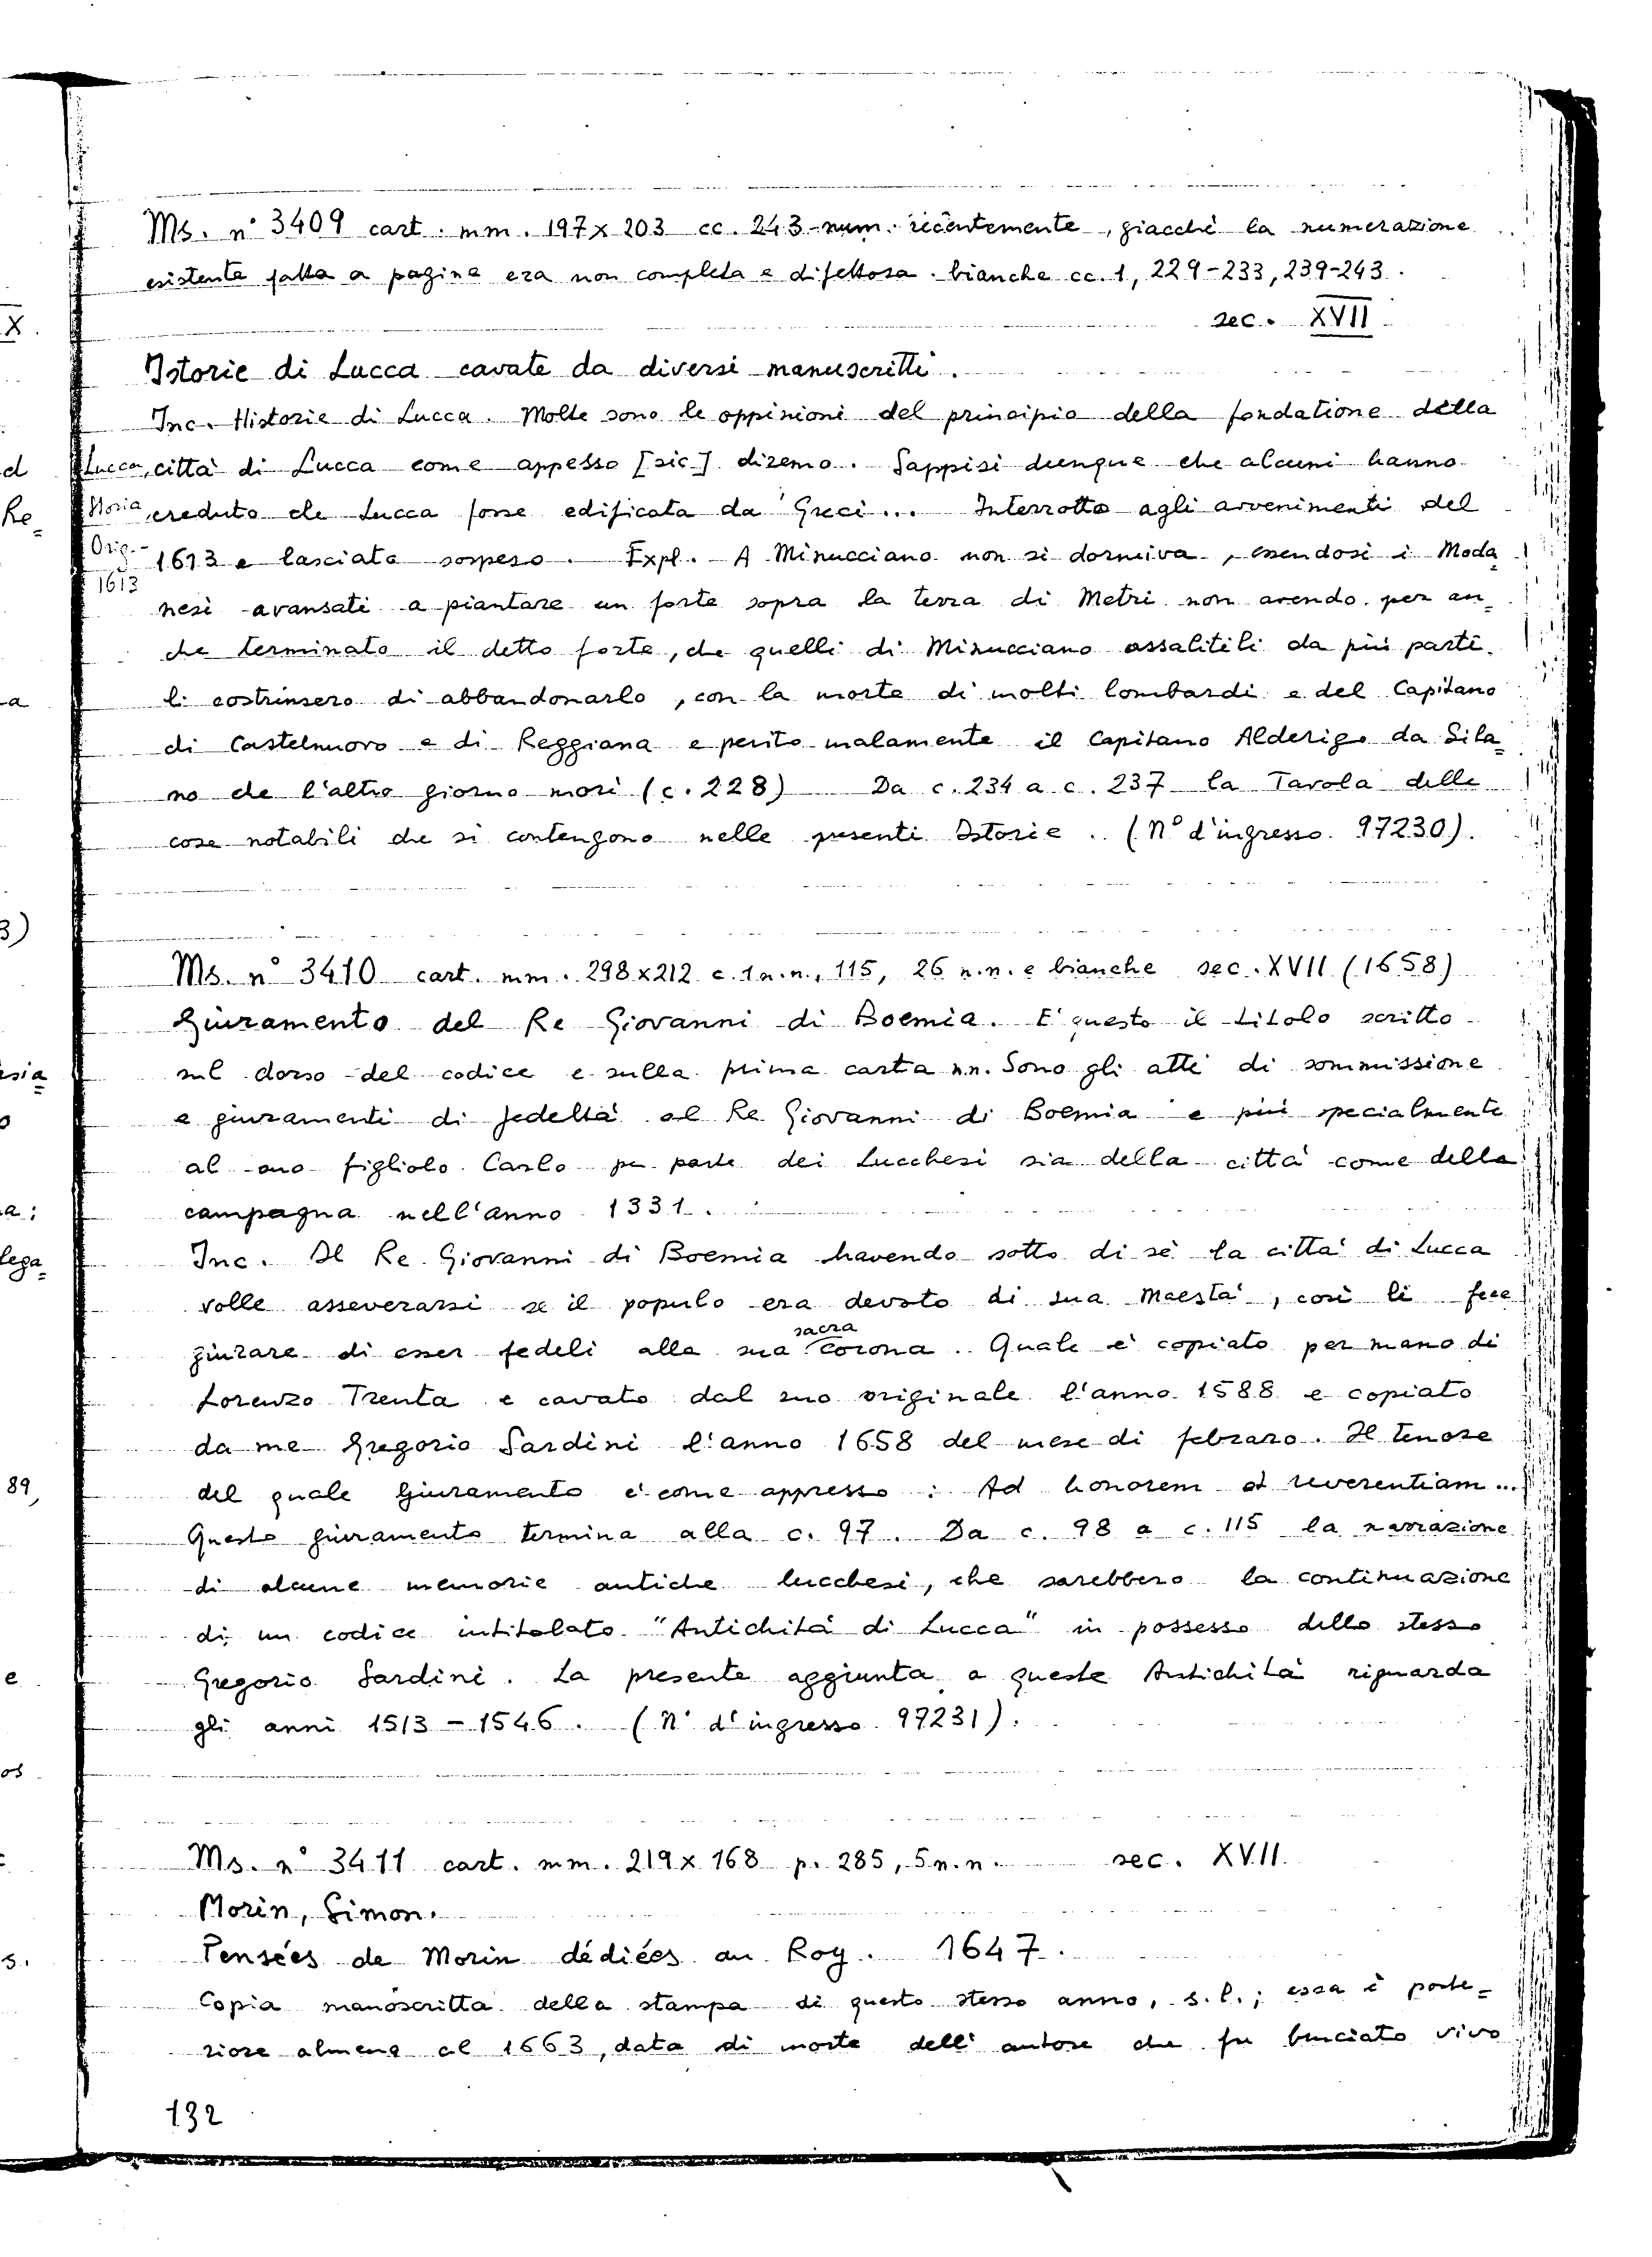 Ms. n° 3409 cart. mm. 197x203 cc. 243 num. recentemente, giacché la numerazione
esistente fatta a pagine era non completa e difettosa. bianche cc. 1, 229-233, 239-243.
sec. XVII
X.
Istorie di Lucca cavate da diversi manuscritti.
Inc. Historie di Lucca. Molte sono le oppinioni del principio della fondatione della
d
Lucca, città di Lucca come appesso [sic] diremo. Sappisi dunque che alcuni hanno
Re=
Storia creduto che Lucca fosse edificata da Greci... Interrotto agli avvenimenti del
Orig.- 1613 e lasciato sospeso. Expl. A Minucciano non si dormiva, essendosi i Moda=
1613
nesi avansati a piantare un forte sopra la terra di Metri non avendo per an=
che terminato il detto forte, che quelli di Minucciano assalitili da più parti
a
li costrinsero di abbandonarlo, con la morte di molti lombardi e del Capitano
di Castelnuovo e di Reggiana e perito malamente il Capitano Alderigo da Sila=
no che l'altro giorno morì (c. 228) Da c. 234 a c. 237 la Tavola delle
cose notabili che si contengono nelle presenti Istorie. (N° d'ingresso 97230).
3)
Ms. n° 3410 cart. mm. 298x212 c. 1 n.n., 115, 26 n.n. e bianche sec. XVII (1658)
Giuramento del Re Giovanni di Boemia. E' questo il titolo scritto
sul dorso del codice e sulla prima carta nn. Sono gli atti di sommissione
e giuramenti di fedeltà al Re Giovanni di Boemia e più specialmente
al suo figliolo Carlo per parte dei Lucchesi sia della città come della
a:
campagna nell'anno 1331.
lega=
Inc. Il Re Giovanni di Boemia havendo sotto di sè la città di Lucca
volle asseverarsi se il populo era devoto di sua Maestà, così li fece
sacra
giurare di esser fedeli alla sua corona. Quale è copiato per mano di
Lorenzo Trenta e cavato dal suo originale l'anno 1588 e copiato
da me Gregorio Sardini l'anno 1658 del mese di febraro. Il tenore
89,
del quale Giuramento è come appresso: Ad honorem et reverentiam...
Questo giuramento termina alla c. 97. Da c. 98 a c. 115 la narrazione
di alcune memorie antiche lucchesi, che sarebbero la continuazione
di un codice intitolato "Antichità di Lucca" in possesso dello stesso
e
Gregorio Sardini. La presente aggiunta a queste Antichità riguarda
gli anni 1513-1546. (N° d'ingresso 97231).
os
Ms. n° 3411 cart. mm. 219x168 p. 285, 5 n.n. sec. XVII
Morin, Simon.
s.
Pensées de Morin dédiées au Roy. 1647.
Copia manoscritta della stampa di questo stesso anno, s.l.; essa è poste=
riore almeno al 1663, data di morte dell'autore che fu bruciato vivo
132